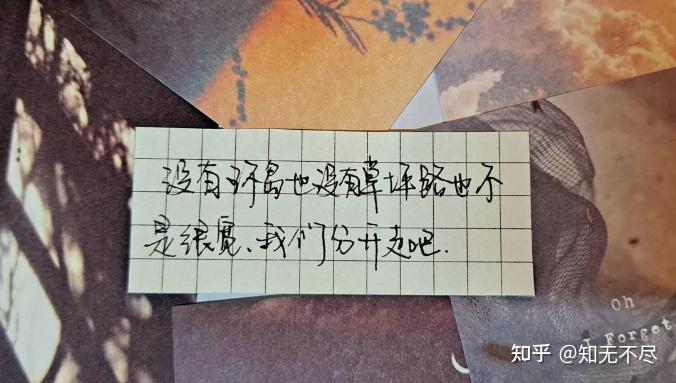 没有环岛也没有草坪路也不
是很宽、我们分开走吧.
Oh
I Forget
知乎 @知无不尽